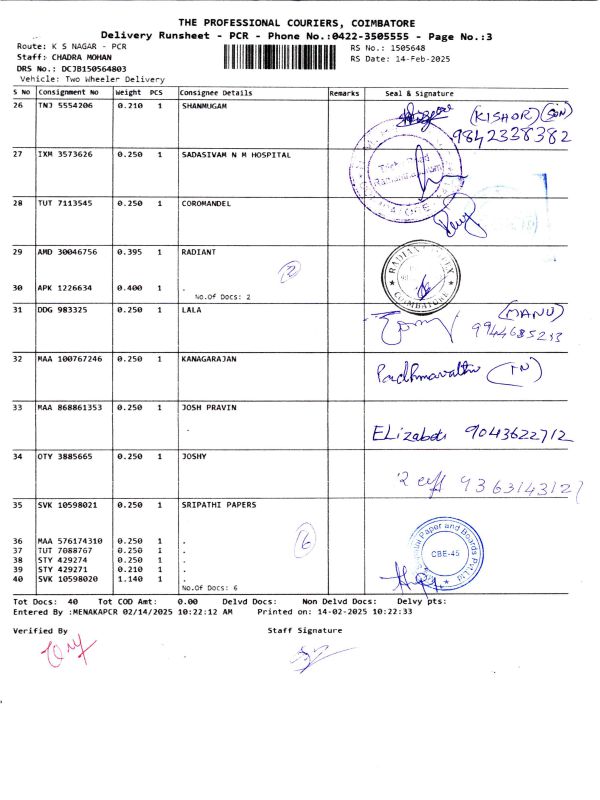 THE PROFESSIONAL COURIERS, COIMBATORE
Delivery Runsheet - PCR - Phone No.:0422-3505555 - Page No.:3
Route: K S NAGAR - PCR
RS No.: 1505648
Staff: CHADRA MOHAN
RS Date: 14-Feb-2025
DRS No.: DCJB150564803
Vehicle: Two Wheeler Delivery
S No Consignment No Weight PCS Consignee Details Remarks Seal & Signature
26 TNJ 5554206 0.210 1 SHANMUGAM
(KISHOR) (SON)
9842338382
27 IXM 3573626 0.250 1 SADASIVAM N M HOSPITAL
28 TUT 7113545 0.250 1 COROMANDEL
29 AMD 30046756 0.395 1 RADIANT
2
RADIANT
COIMBATORE
30 APK 1226634 0.400 1 .
No.Of Docs: 2
31 DDG 983325 0.250 1 LALA
(MANU)
9944685233
32 MAA 100767246 0.250 1 KANAGARAJAN
Padhmavathi
33 MAA 868861353 0.250 1 JOSH PRAVIN
.
ELizabeti 9043622712
34 OTY 3885665 0.250 1 JOSHY
9363143121
35 SVK 10598021 0.250 1 SRIPATHI PAPERS
Paper and Boards Pvt Ltd
CBE-45
6
36 MAA 576174310 0.250 1 .
37 TUT 7088767 0.250 1 .
38 STY 429274 0.250 1 .
39 STY 429271 0.210 1 .
40 SVK 10598020 1.140 1 .
No.Of Docs: 6
Tot Docs: 40 Tot COD Amt: 0.00 Delvd Docs: Non Delvd Docs: Delvy pts:
Entered By :MENAKAPCR 02/14/2025 10:22:12 AM Printed on: 14-02-2025 10:22:33
Verified By
Staff Signature